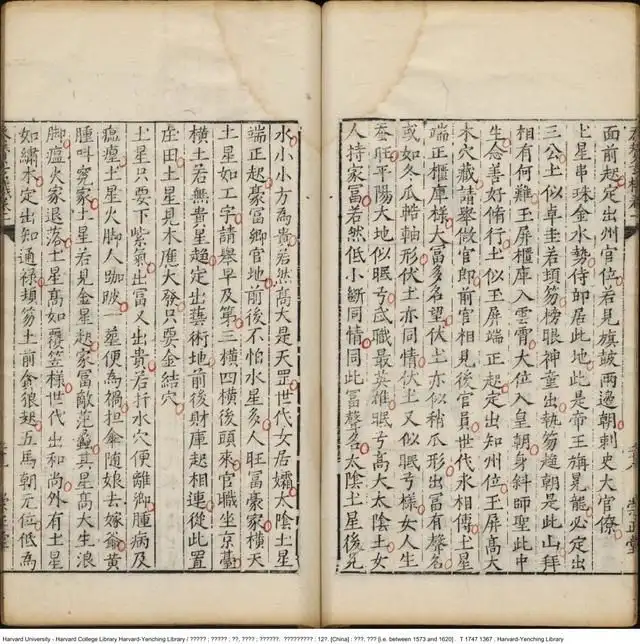 面前起定出州官位若見旗鼓两邉朝刺史大官僚
土星串珠金水勢侍郎居此地此是帝王旗晃龍必定出
三公土似卓圭若頓笏榜眼神童出執笏趨朝是此山拜
相有何難玉屏櫃庫入雲霄大位入皇朝身斜師聖此中
生念善好脩行土似玉屏端正起定出知州位玉屏高大
木穴藏請舉做官郎前官相見後官員世代水相傳土星
端正櫃庫様大富多名望伏土亦似稍瓜形出冨有聲名
或如冬瓜輅軸形伏土亦同情伏土又似眠弓様女人生
蚕旺平陽大地似眠弓武職最英雄眠弓高大太陰土女
人持家冨若然低小斷同情同此冨聲名太陰土星後兄
水小小方為貴若然高大是天罡世代女居孀太陰土星
端正起豪冨卿官地前後不怕水星多人旺冨豪家横天
土星如工字請舉早及第三横四横後頭來官職坐京臺
横土若無貴星趨定出藝術地前後財庫起相連從此置
庄田土星見木應大發只要金結穴
土星只要下紫氣出冨又出貴若扦水穴便離鄉腫病及
瘟土星火脚人跏跛一墓便為禍担傘隨娘去嫁翁黄
腫叫窮家土星若見金星起家冨敵范蠡真星高大生浪
脚瘟火家退落土星高如覆笠様世代出和尚外有土星
如繡木定出知通祿頓笏土前貪狼起五馬朝元位低為
Harvard University - Harvard College Library Harvard-Yenching Library / ????? ; ????? ; ??, ???? ; ??????. ????????? : 12?. [China] : ???, ??? [i.e. between 1573 and 1620]. : T 1747 1367 ; Harvard-Yenching Library